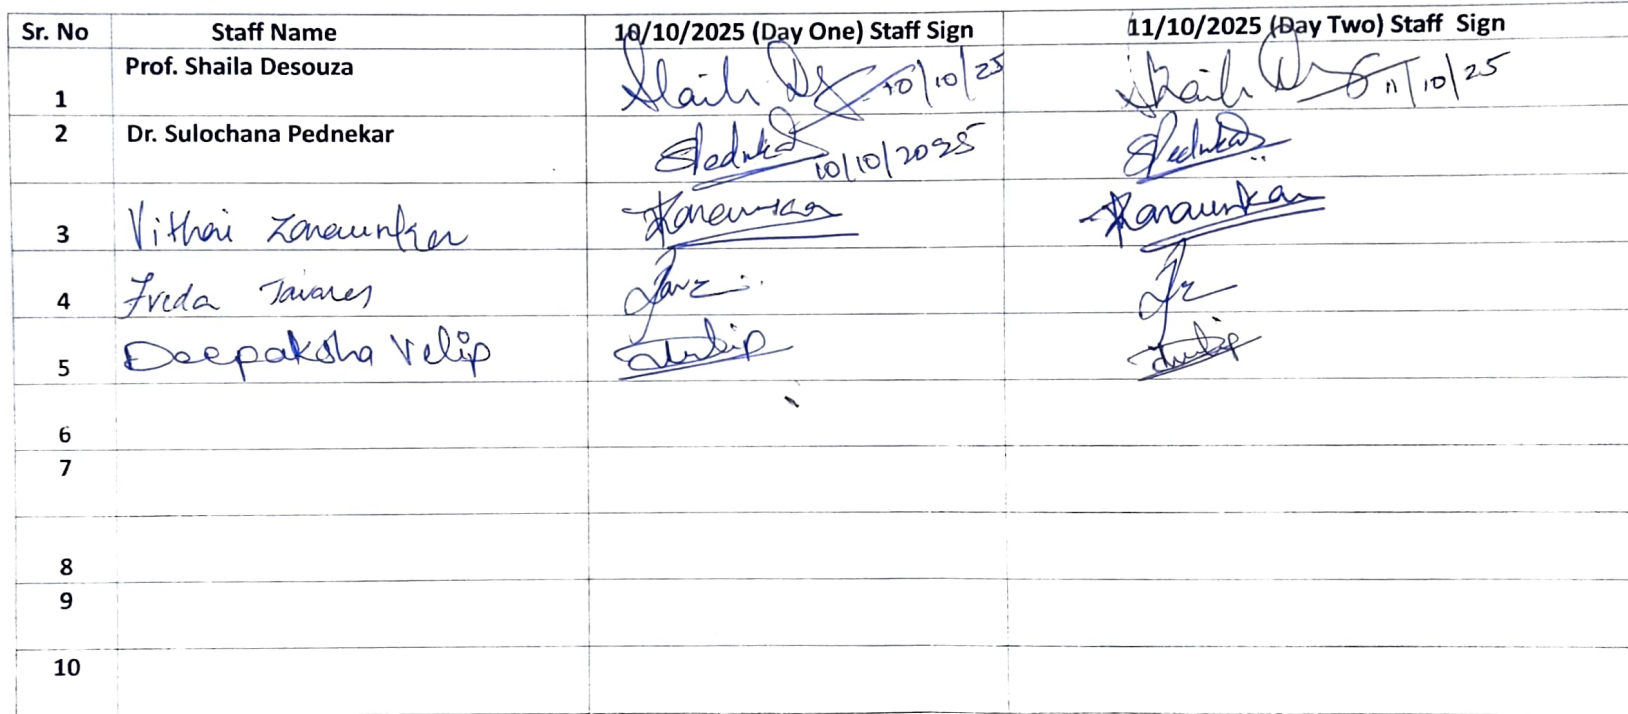 Sr. No Staff Name 10/10/2025 (Day One) Staff Sign 11/10/2025 (Day Two) Staff Sign
1 Prof. Shaila Desouza Shaila 10/10/25 Shaila 11/10/25
2 Dr. Sulochana Pednekar SPednekar 10/10/2025 SPednekar
3 Vithai Zaraunkar Zaraunkar Zaraunkar
4 Freda Tavares
5 Deepaksha Velip
6
7
8
9
10